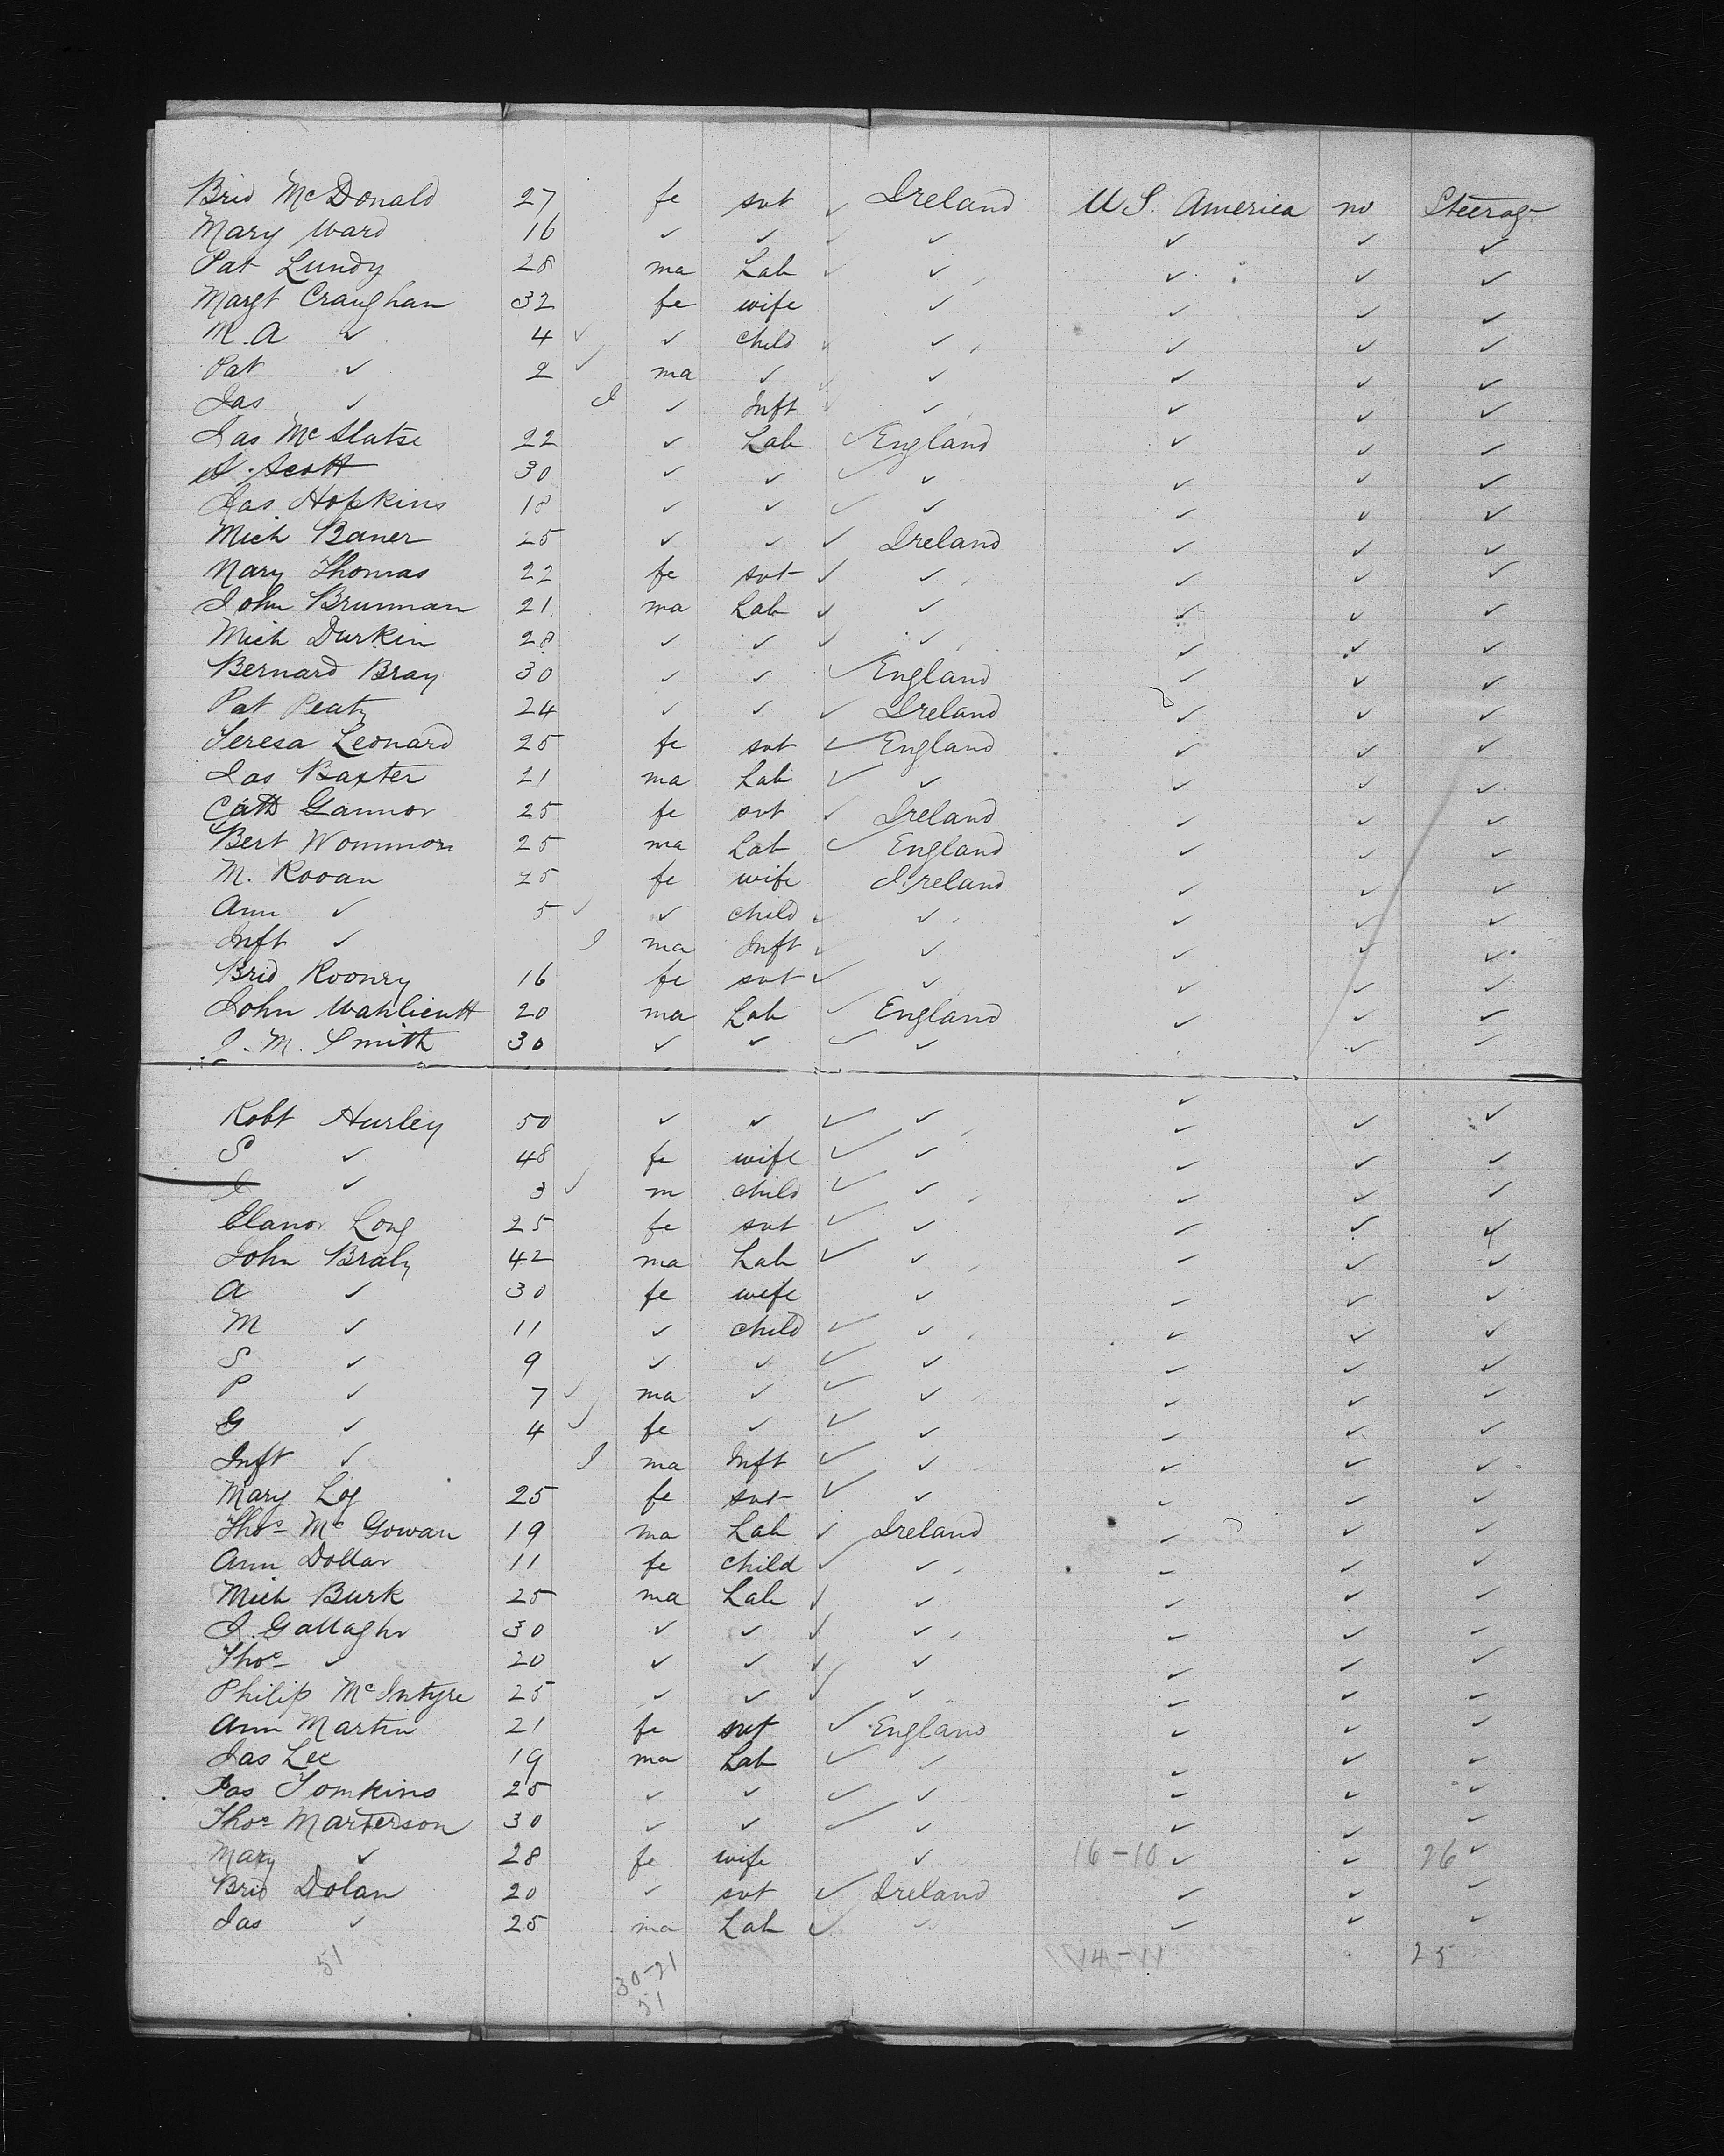 Brid McDonald 27 fe svt ✓ Ireland U S. America no Steerage
Mary Ward 16 ✓ ✓ ✓ ✓ ✓ ✓ ✓
Pat Lundy 28 ma Lab ✓ ✓ ✓ ✓ ✓
Margt Craughan 32 fe wife ✓ ✓ ✓ ✓
M. A ✓ 4 ✓ ✓ child ✓ ✓ ✓ ✓ ✓
Pat ✓ 2 ✓ ma ✓ ✓ ✓ ✓ ✓ ✓
Jas ✓ I ✓ Inft ✓ ✓ ✓ ✓ ✓
Jas 22 ✓ Lab ✓ England ✓ ✓ ✓
Scott 30 ✓ ✓ ✓ ✓ ✓ ✓ ✓
Jas Hopkins 18 ✓ ✓ ✓ ✓ ✓ ✓ ✓
Mich Baner 25 ✓ ✓ ✓ Ireland ✓ ✓ ✓
Mary Thomas 22 fe svt ✓ ✓ ✓ ✓ ✓
John Brunman 21 ma Lab ✓ ✓ ✓ ✓ ✓
Mich Durkin 28 ✓ ✓ ✓ ✓ ✓ ✓ ✓
Bernard Bray 30 ✓ ✓ ✓ England ✓ ✓ ✓
Pat 24 ✓ ✓ ✓ Ireland ✓ ✓ ✓
Teresa Leonard 25 fe svt ✓ England ✓ ✓ ✓
Jas Baxter 21 ma Lab ✓ ✓ ✓ ✓ ✓
Cath Gannor 25 fe svt ✓ Ireland ✓ ✓ ✓
Bert 25 ma Lab ✓ England ✓ ✓ ✓
M. Rooan 25 fe wife Ireland ✓ ✓ ✓
Ann ✓ 5 ✓ ✓ child ✓ ✓ ✓ ✓ ✓
Inft ✓ I ma Inft ✓ ✓ ✓ ✓ ✓
Brid Roonry 16 fe svt ✓ ✓ ✓ ✓ ✓
John 20 ma Lab ✓ England ✓ ✓ ✓
J. M. Smith 30 ✓ ✓ ✓ ✓ ✓ ✓
Robt Hurley 50 ✓ ✓ ✓ ✓ ✓ ✓ ✓
S ✓ 48 fe wife ✓ ✓ ✓ ✓ ✓
J ✓ 3 ✓ m child ✓ ✓ ✓ ✓ ✓
Elanor Long 25 fe svt ✓ ✓ ✓ ✓ ✓
John Braly 42 ma Lab ✓ ✓ ✓ ✓ ✓
A ✓ 30 fe wife ✓ ✓ ✓ ✓
M ✓ 11 ✓ child ✓ ✓ ✓ ✓ ✓
S ✓ 9 ✓ ✓ ✓ ✓ ✓ ✓ ✓
P ✓ 7 ✓ ma ✓ ✓ ✓ ✓ ✓ ✓
G ✓ 4 ✓ fe ✓ ✓ ✓ ✓ ✓ ✓
Inft ✓ I ma Inft ✓ ✓ ✓ ✓ ✓
Mary 25 fe svt ✓ ✓ ✓ ✓ ✓
Thos McGowan 19 ma Lab ✓ Ireland ✓ ✓ ✓
Ann Dollar 11 fe child ✓ ✓ ✓ ✓ ✓
Mich Burk 25 ma Lab ✓ ✓ ✓ ✓ ✓
J. Gallaghr 30 ✓ ✓ ✓ ✓ ✓ ✓ ✓
Thos ✓ 20 ✓ ✓ ✓ ✓ ✓ ✓ ✓
Philip McIntyre 25 ✓ ✓ ✓ ✓ ✓ ✓ ✓
Ann Martin 21 fe svt ✓ England ✓ ✓ ✓
Jas Lee 19 ma Lab ✓ ✓ ✓ ✓ ✓
Jas Tomkins 25 ✓ ✓ ✓ ✓ ✓ ✓ ✓
Thos Marterson 30 ✓ ✓ ✓ ✓ ✓ ✓ ✓
Mary ✓ 28 fe wife ✓ 16-10 ✓ ✓ 26 ✓
Brid Dolan 20 ✓ svt ✓ Ireland ✓ ✓ ✓
Jas ✓ 25 ma Lab ✓ ✓ ✓ ✓ ✓
51 30-21 14-11 25
51